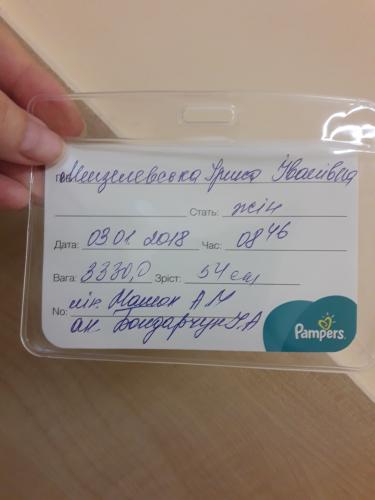 ПІБ: Мицелевська Ірина Іванівна
Стать: жін
Дата: 03 01. 2018 Час: 08 46
Вага: 3330,0 Зріст: 54 см
No: лік. Машок А М
ак. Бондарчук І. А
Pampers